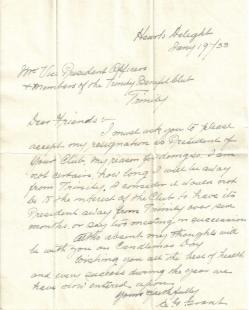 Hearts Delight
Jany 19/33
Mr Vice President Officers
& members of the Trinity Benefit Club
Trinity
Dear Friends :-
I must ask you to please
accept my resignation as President of
Your Club, my reason for doing so I am
not certain, how long I will be away
from Trinity, I consider it would not
be to the interest of the Club to have its
President away from Trinity over five
months, or say two meeting in succession
Altho absent my thoughts will
be with you on Candlemas Day
Wishing you all the best of health
and every success during the year we
have now entered upon
Yours
Grant